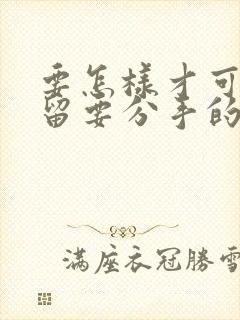 要怎樣才可
留要分手的
滿座衣冠勝雪